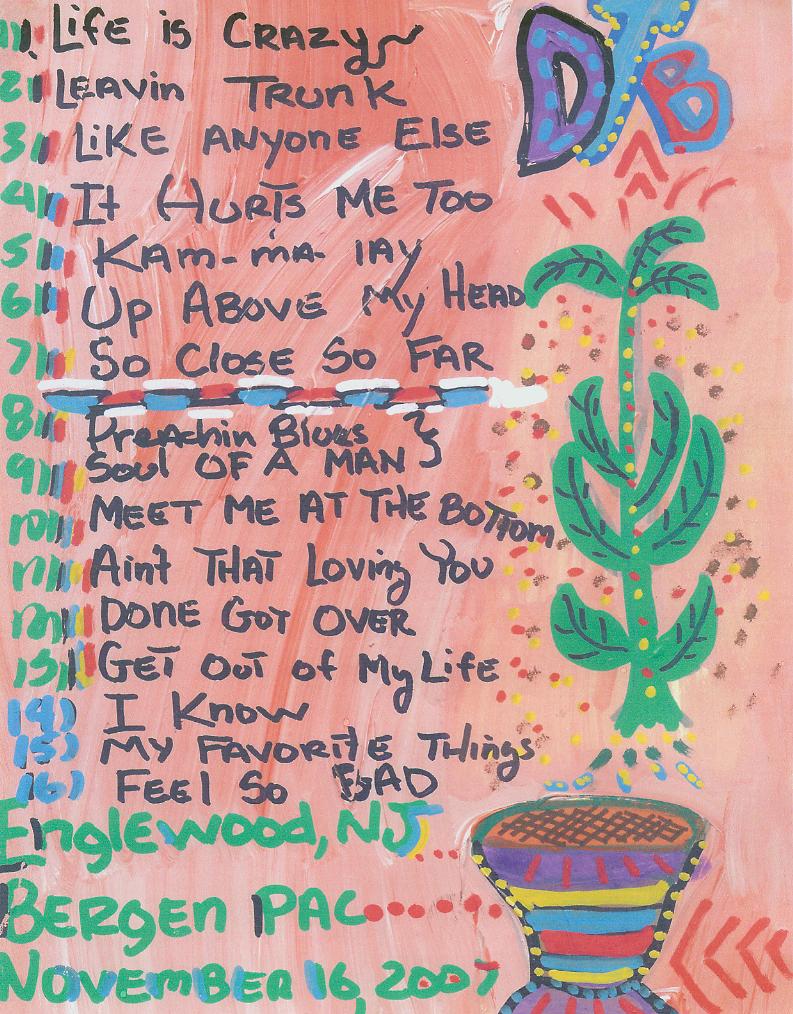 DTB
1) Life is CRAZY
2) LEAVin TRunK
3) LiKE ANYONE Else
4) It HURTS ME Too
5) KAm-ma-lAy
6) Up ABOVE My HEAD
7) So Close So FAR
8) PreAchin Blues }
9) Soul OF A MAN
10) MEET ME AT THE BOTTom
11) Aint THAT Loving You
12) DONE GOT OVER
13) GET OuT of My Life
14) I Know
15) MY FAVORITE THings
16) FEEl So BAD
EnglEwood, NJ
BERGEn PAC
NOVEMBER 16, 2007